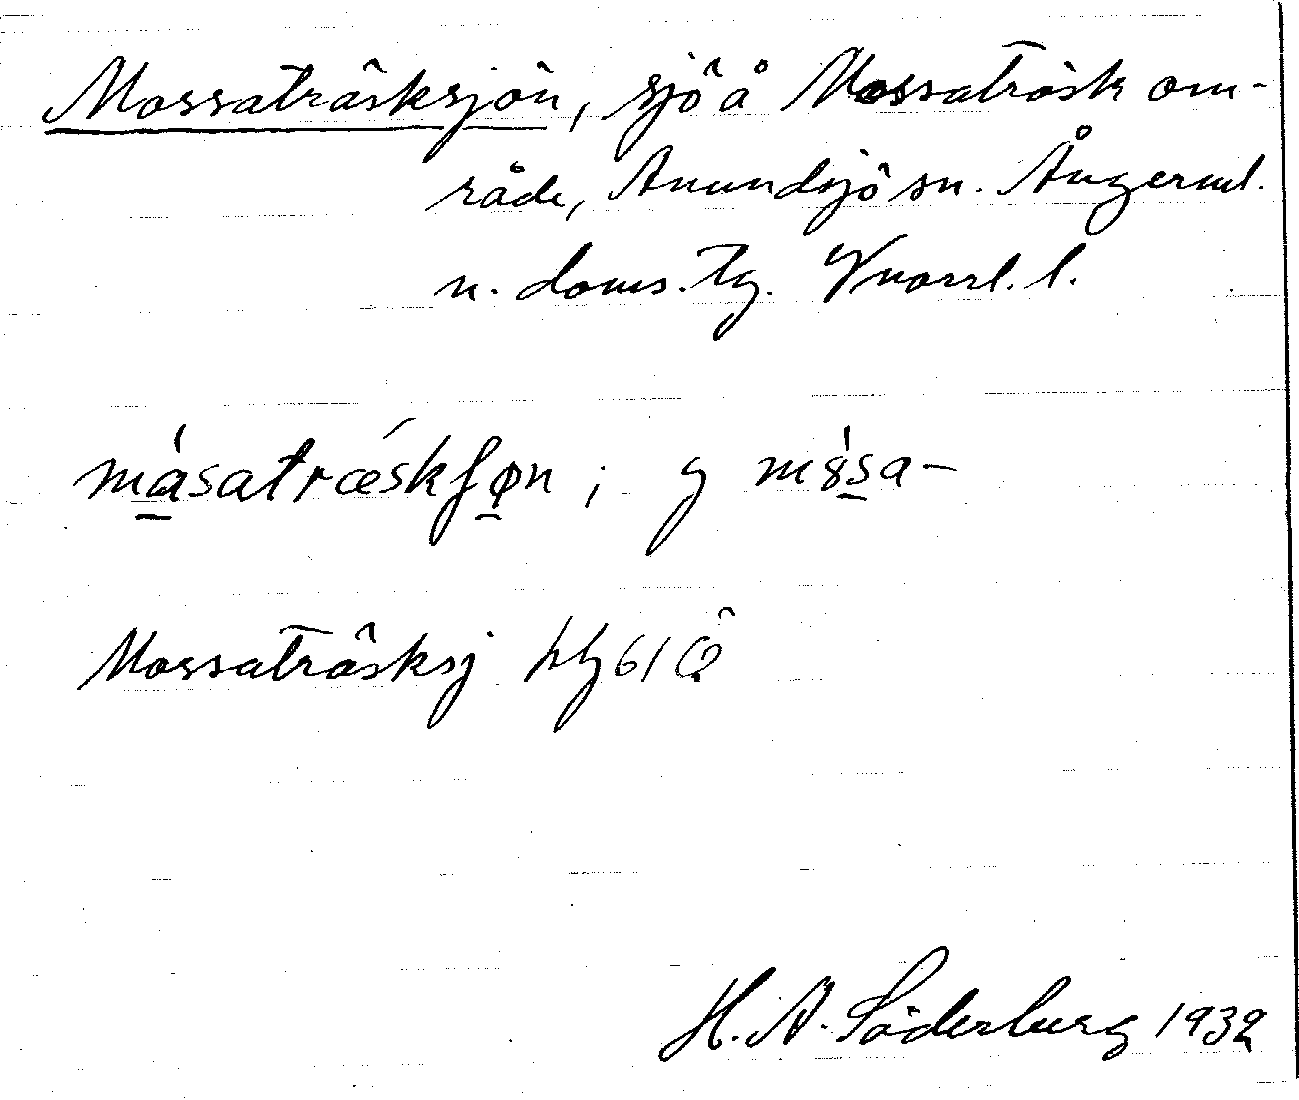 Mossaträsksjön, sjö å Mossaträsk om-
råde, Anundsjö sn. Ångerml.
n. doms. tg. Vnorrl. l.
måsatræskʃøn ; y mɞsa-
Mossaträsksj hly 61 Ö
H. A. Söderberg 1932